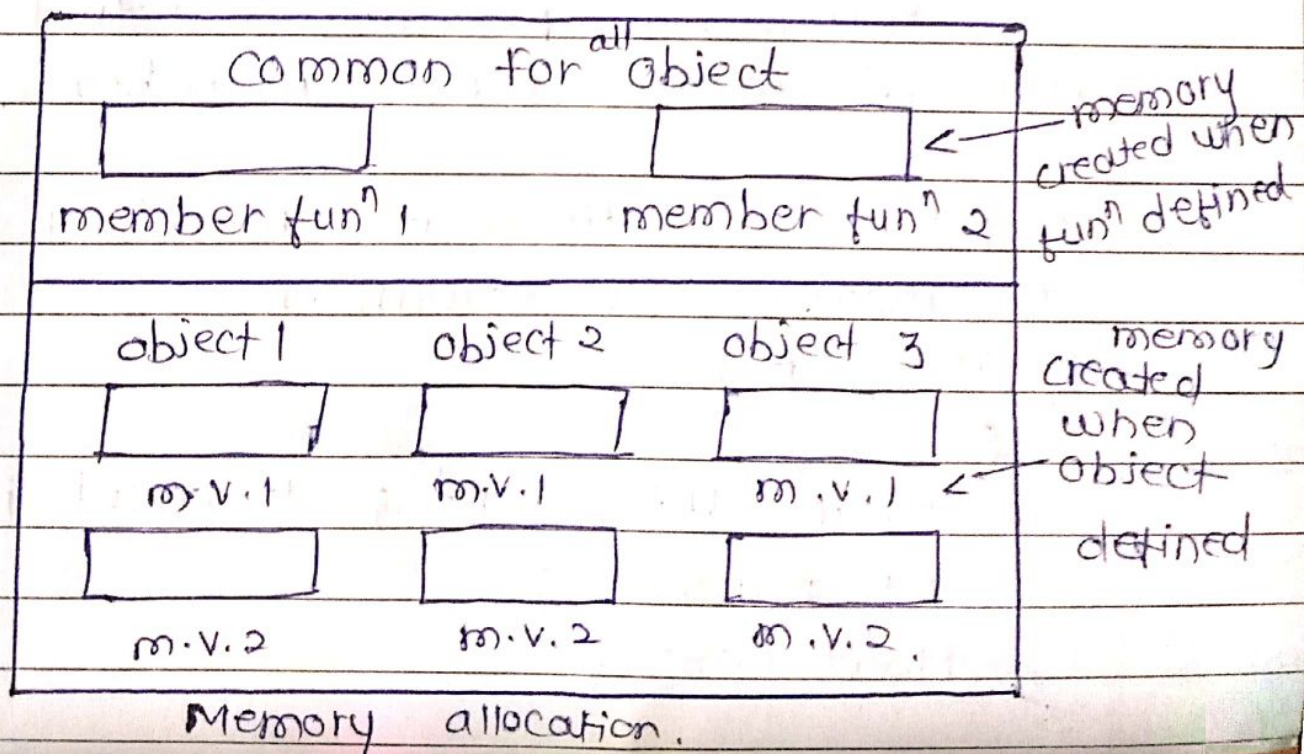 common for all object
member funⁿ 1
member funⁿ 2
memory
created when
funⁿ defined
object 1
object 2
object 3
m.v.1
m.v.1
m.v.1
m.v.2
m.v.2
m.v.2.
memory
created
when
object
defined
Memory allocation.